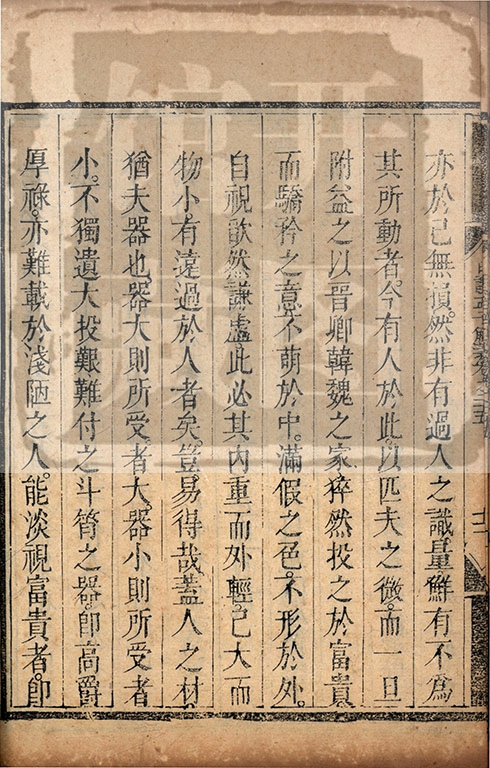 亦於己無損。然非有過人之識量。鮮有不爲
其所動者。今有人於此。以匹夫之微。而一旦
附益之以晉卿韓魏之家。猝然投之於富貴
而驕矜之意。不萌於中。滿假之色。不形於外。
自視欿然謙虛。此必其內重而外輕。己大而
物小。有遠過於人者矣。豈易得哉。蓋人之材
猶夫器也。器大則所受者大。器小則所受者
小。不獨遺大投艱。難付之斗筲之器。卽高爵
厚祿。亦難載於淺陋之人。能淡視富貴者。卽